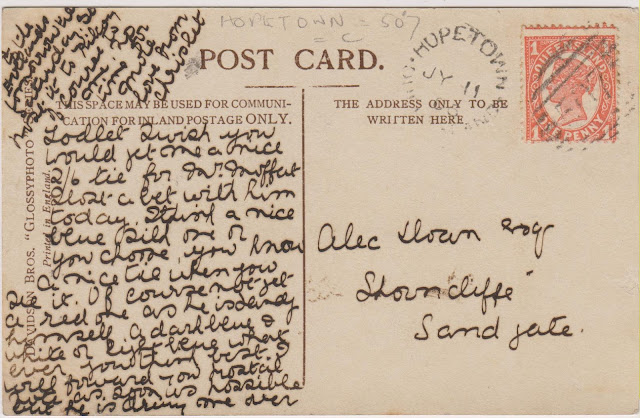 HOPETOWN = 507
= C
POST CARD.
HOPETOWN
JY 11
QUEENSLAND
1
1
ONE PENNY
THIS SPACE MAY BE USED FOR COMMUNI-
CATION FOR INLAND POSTAGE ONLY.
THE ADDRESS ONLY TO BE
WRITTEN HERE.
DAVIDSON BROS. "GLOSSYPHOTO" SERIES
Printed in England.
I wish you
would get me a nice
2/6 tie for Mr. Moffat
I lost a bet with him
today. I think a nice
blue silk one or
you choose, you know
a nice tie when you
see it. Of course not get
a red one as he is sandy
himself a dark blue &
white or light blue what
ever you think best. I
will forward you postal
note as soon as possible
but he is driving me over
to
more
love from
Alec Sloan Esq
"Shorncliffe"
Sandgate.